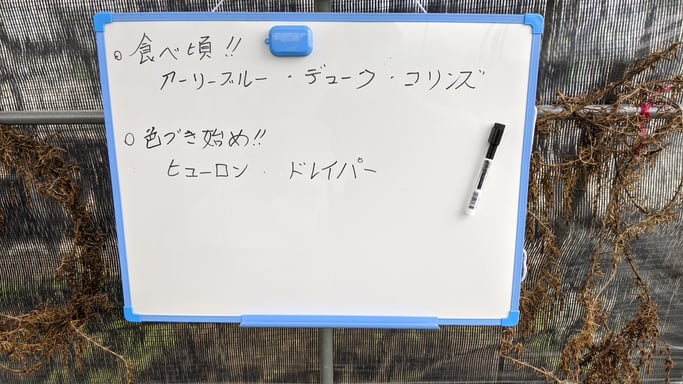 ○ 食べ頃!!
アーリーブルー・デューク・コリンズ
○ 色づき始め!!
ヒューロン・ドレイパー